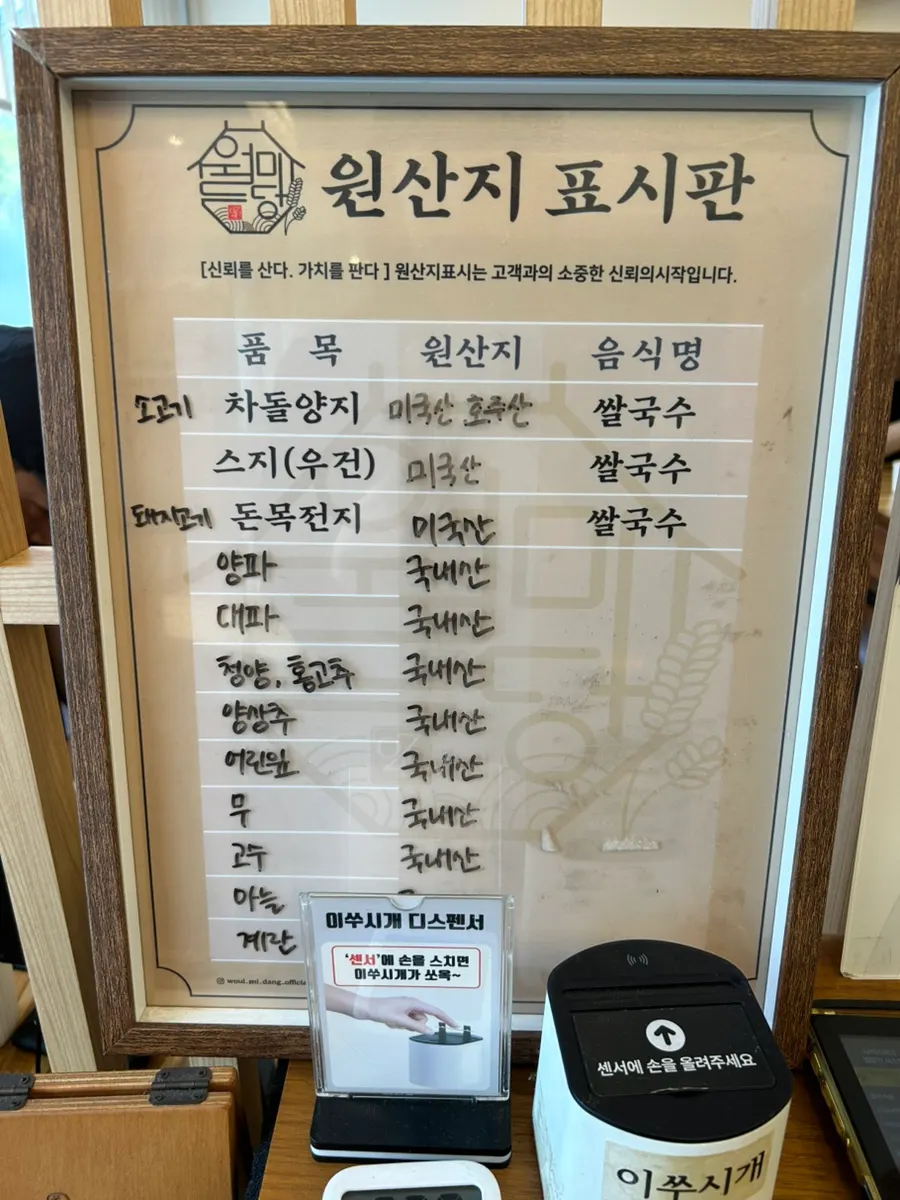 월미당
원산지 표시판
[신뢰를 산다. 가치를 판다 ] 원산지표시는 고객과의 소중한 신뢰의시작입니다.
품 목 원산지 음식명
소고기 차돌양지 미국산 호주산 쌀국수
스지(우건) 미국산 쌀국수
돼지고기 돈목전지 미국산 쌀국수
양파 국내산
대파 국내산
청양, 홍고추 국내산
양상추 국내산
어린잎 국내산
무 국내산
고수 국내산
마늘
계란
woul_mi_dang_officia
이쑤시개 디스펜서
'센서'에 손을 스치면
이쑤시개가 쏘옥~
센서에 손을 올려주세요
이쑤시개